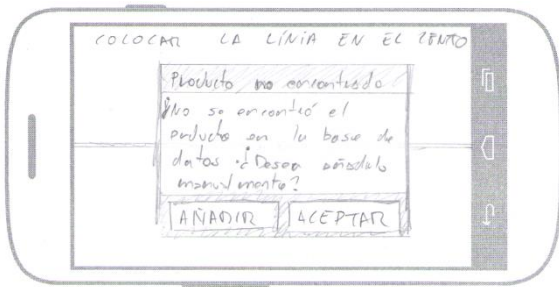 COLOCAR LA LÍNIA EN EL CENTO
Producto no encontrado
¡No se encontró el
producto en la base de
datos. ¿Desea añadirlo
manualmente?
AÑADIR ACEPTAR